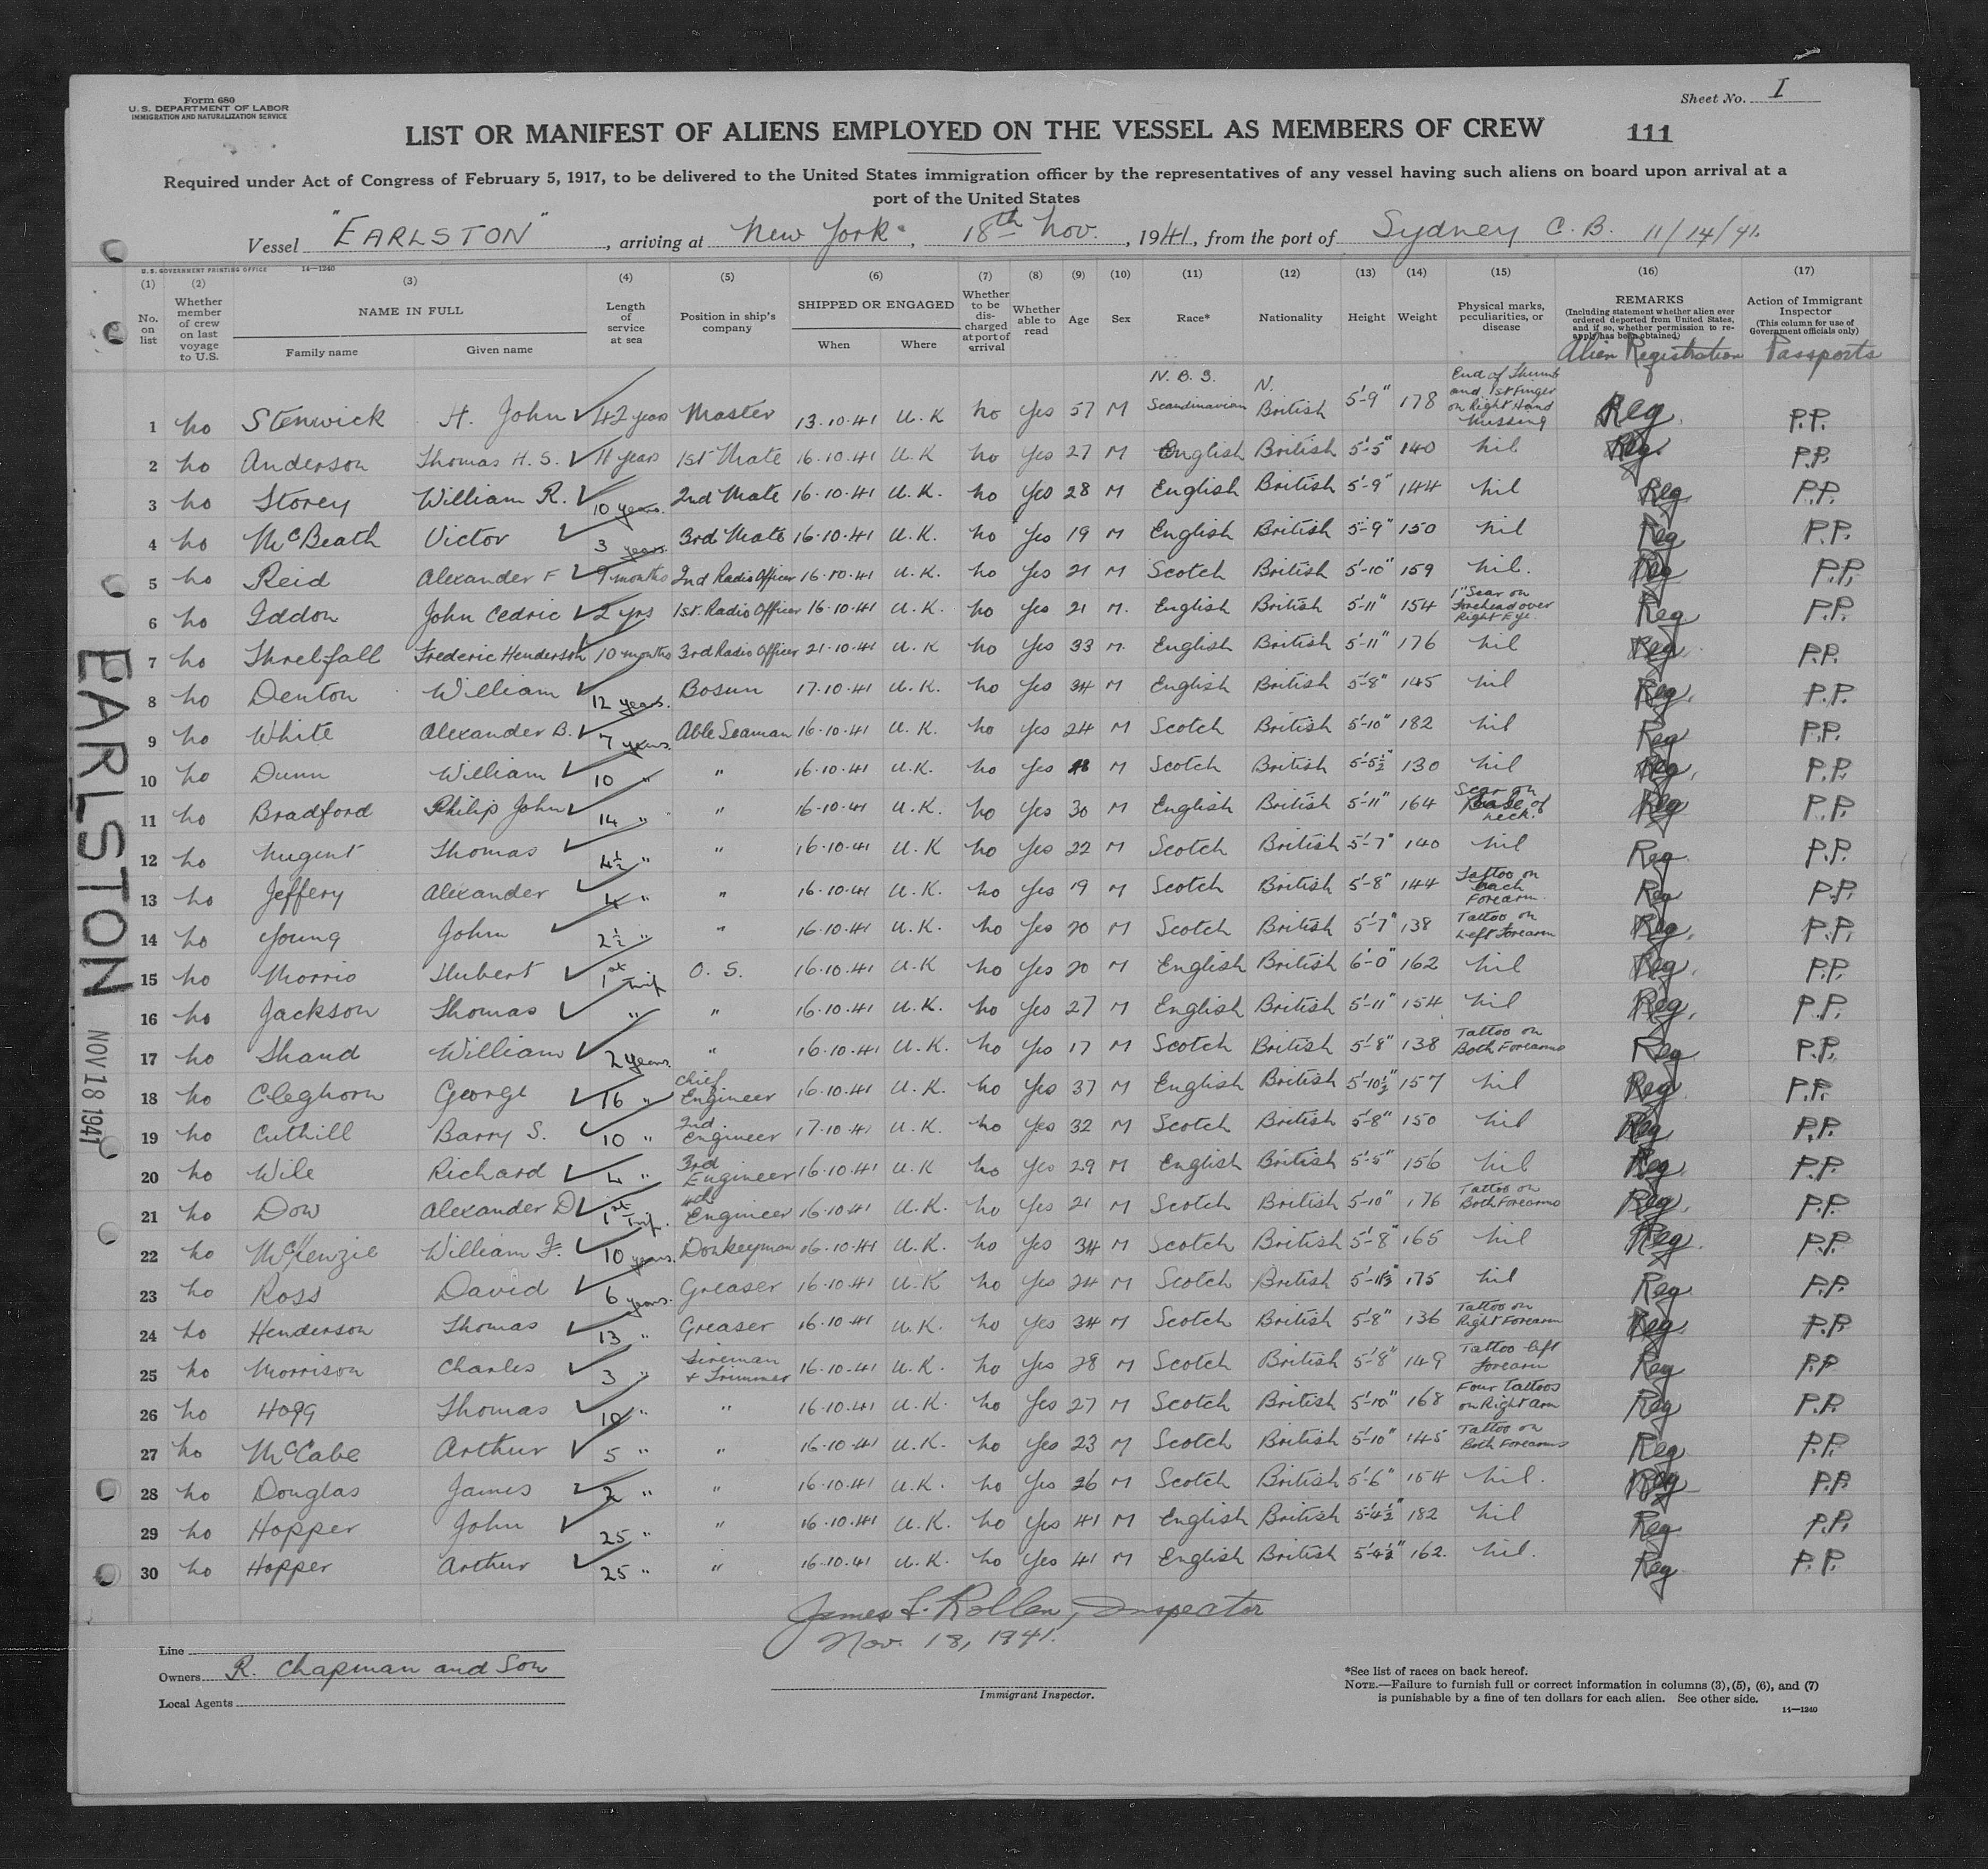 Form 680
U. S. DEPARTMENT OF LABOR
IMMIGRATION AND NATURALIZATION SERVICE
Sheet No. I
LIST OR MANIFEST OF ALIENS EMPLOYED ON THE VESSEL AS MEMBERS OF CREW 111
Required under Act of Congress of February 5, 1917, to be delivered to the United States immigration officer by the representatives of any vessel having such aliens on board upon arrival at a
port of the United States
Vessel "EARLSTON", arriving at New York, 18th Nov., 1941, from the port of Sydney C. B. 11/14/41
U. S. GOVERNMENT PRINTING OFFICE 14—1240
(1) No. on list
(2) Whether member of crew on last voyage to U.S.
(3) NAME IN FULL Family name Given name
(4) Length of service at sea
(5) Position in ship's company
(6) SHIPPED OR ENGAGED When Where
(7) Whether to be discharged at port of arrival
(8) Whether able to read
(9) Age
(10) Sex
(11) Race*
(12) Nationality
(13) Height
(14) Weight
(15) Physical marks, peculiarities, or disease
(16) REMARKS (Including statement whether alien ever ordered deported from United States, and if so, whether permission to reapply has been obtained) Alien Registration
(17) Action of Immigrant Inspector (This column for use of Government officials only) Passports
1 No Stenwick H. John 42 years Master 13.10.41 U.K No Yes 57 M N.B.S. Scandinavian N. British 5'-9" 178 End of Thumb and 1st Finger on Right Hand Missing Reg P.P.
2 No Anderson Thomas H. S. 11 years 1st Mate 16.10.41 U.K No Yes 27 M English British 5'-5" 140 Nil Reg. P.P.
3 No Storey William R. 10 years. 2nd Mate 16.10.41 U.K. No Yes 28 M English British 5'-9" 144 Nil Reg P.P.
4 No McBeath Victor 3 years. 3rd Mate 16.10.41 U.K. No Yes 19 M English British 5'-9" 150 Nil Reg P.P.
5 No Reid Alexander F 9 months 2nd Radio Officer 16.10.41 U.K. No Yes 21 M Scotch British 5'-10" 159 Nil. Reg P.P.
6 No Iddon John Cedric 2 yrs 1st Radio Officer 16.10.41 U.K. No Yes 21 M. English British 5'-11" 154 1" Scar on Forehead over Right Eye Reg P.P.
7 No Threlfall Frederic Henderson 10 months 3rd Radio Officer 21.10.41 U.K No Yes 33 M. English British 5'-11" 176 Nil Reg P.P.
8 No Denton William 12 years. Bosun 17.10.41 U.K. No Yes 34 M English British 5'-8" 145 Nil Reg. P.P.
9 No White Alexander B. 7 years. Able Seaman 16.10.41 U.K. No Yes 24 M Scotch British 5'-10" 182 Nil Reg P.P.
10 No Dunn William 10 " " 16.10.41 U.K. No Yes M Scotch British 5'-5½" 130 Nil Reg. P.P.
11 No Bradford Philip John 14 " " 16.10.41 U.K. No Yes 30 M English British 5'-11" 164 Scar on Base of Neck. Reg P.P.
12 No Nugent Thomas 4½ " " 16.10.41 U.K No Yes 22 M Scotch British 5'-7" 140 Nil Reg P.P.
13 No Jeffery Alexander 4 " " 16.10.41 U.K. No Yes 19 M Scotch British 5'-8" 144 Tattoo on Each Forearm Reg P.P.
14 No Young John 2½ " " 16.10.41 U.K. No Yes 20 M Scotch British 5'-7" 138 Tattoo on Left Forearm Reg. P.P.
15 No Morris Hubert 1st Trip O. S. 16.10.41 U.K No Yes 20 M English British 6'-0" 162 Nil Reg. P.P.
16 No Jackson Thomas " " 16.10.41 U.K. No Yes 27 M English British 5'-11" 154 Nil Reg. P.P.
17 No Shand William 2 years. " 16.10.41 U.K. No Yes 17 M Scotch British 5'-8" 138 Tattoo on Both Forearms Reg P.P.
18 No Cleghorn George 16 " Chief Engineer 16.10.41 U.K. No Yes 37 M English British 5'-10½" 157 Nil Reg P.P.
19 No Cuthill Barry S. 10 " 2nd. Engineer 17.10.41 U.K. No Yes 32 M Scotch British 5'-8" 150 Nil Reg P.P.
20 No Wile Richard 4 " 3rd Engineer 16.10.41 U.K No Yes 29 M English British 5'-5" 156 Nil Reg. P.P.
21 No Dow Alexander D 1st Trip. 4th Engineer 16.10.41 U.K. No Yes 21 M Scotch British 5'-10" 176 Tattoo on Both Forearms Reg. P.P.
22 No McKenzie William F. 10 years. Donkeyman 16.10.41 U.K. No Yes 34 M Scotch British 5'-8" 165 Nil Reg. P.P.
23 No Ross David 6 years. Greaser 16.10.41 U.K No Yes 24 M Scotch British 175 Nil Reg. P.P.
24 No Henderson Thomas 13 " Greaser 16.10.41 U.K. No Yes 34 M Scotch British 5'-8" 136 Tattoo on Right Forearm Reg. P.P.
25 No Morrison Charles 3 " Fireman & Trimmer 16.10.41 U.K. No Yes 28 M Scotch British 5'-8" 149 Tattoo left Forearm Reg P.P
26 No Hogg Thomas 10 " " 16.10.41 U.K. No Yes 27 M Scotch British 5'-10" 168 Four Tattoos on Right Arm Reg P.P.
27 No McCabe Arthur 5 " " 16.10.41 U.K. No Yes 23 M Scotch British 5'-10" 145 Tattoo on Both Forearms Reg P.P.
28 No Douglas James 2 " " 16.10.41 U.K. No Yes 26 M Scotch British 5'-6" 154 Nil. Reg P.P
29 No Hopper John 25 " " 16.10.41 U.K. No Yes 41 M English British 5'-4½" 182 Nil Reg P.P.
30 No Hopper Arthur 25 " " 16.10.41 U.K. No Yes 41 M English British 5'-4½" 162. Nil. Reg P.P.
EARLSTON NOV 18 1941
James L. Rollen, Inspector
Nov. 18, 1941.
Line
Owners R. Chapman and Son
Local Agents
Immigrant Inspector.
*See list of races on back hereof.
NOTE.—Failure to furnish full or correct information in columns (3), (5), (6), and (7)
is punishable by a fine of ten dollars for each alien. See other side.
14—1240